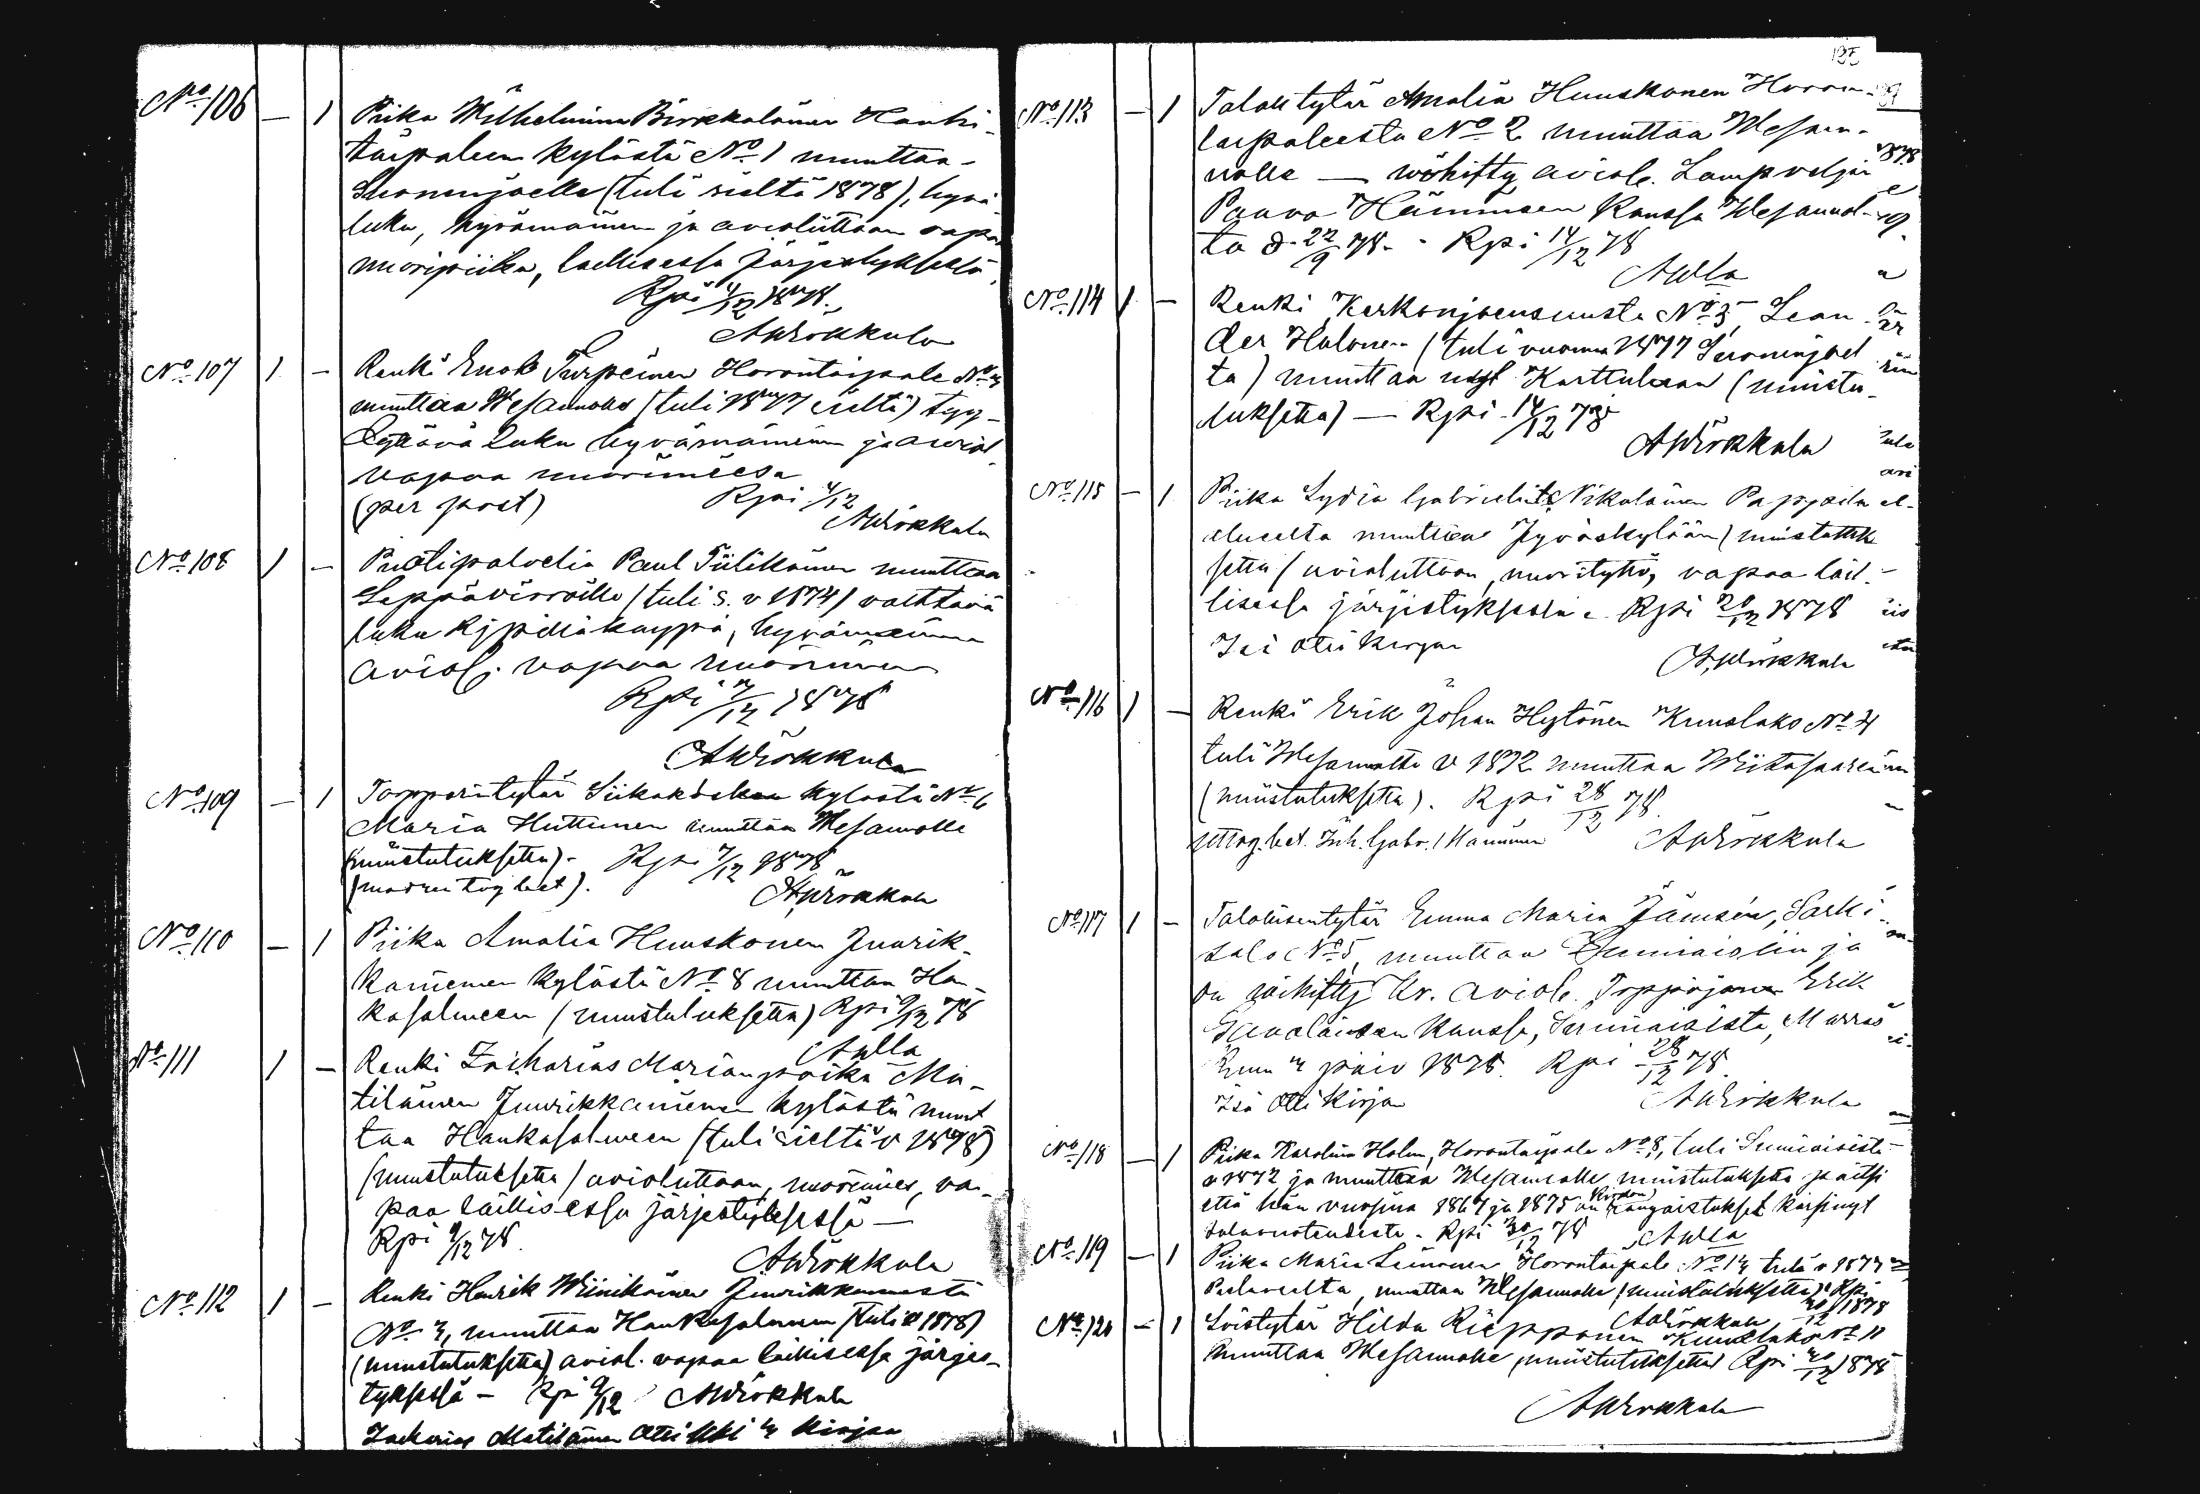 No 106 — 1 Piika Wilhelmina Birkkaläinen Hanki-
taipaleen kylästä No 1 muuttaa
Suonenjoelle (tuli sieltä 1878), hyvä
luku, hyvämainen ja avioliittoon vapa
nuoripiika, laillisessa järjestyksessä
Rpi 4/12 1878.
AWirkkula
No 107 1 — Renki Enok Turpeinen Horontaipale No
muuttaa Wesannolle (tuli 1877 sieltä) tyy-
dyttävä luku hyvämaineinen ja aviol.
vapaa nuorimies
(per post) Rpi 4/12
AWirkkula
No 108 1 — Puotipalvelia Paul Tiilikainen muuttaa
Leppävirroille (tuli s. v 1874) välttävä
luku Rippiäkäypä, hyvämainen
aviol. vapaa nuorimies
Rpi 7/12 1878
AWirkkula
No 109 — 1 Torpparintytär Siikakosken kylästä No 6
Maria Huttunen muuttaa Wesannolle
(muistutuksetta). Rpi 7/12 1878
(modren tog bet). AWirkkula
No 110 — 1 Piika Amalia Huuskonen Juurik-
kaniemen kylästä No 8 muuttaa Han-
kasalmeen (muistutuksetta) Rpi 9/12 78
AWlla
No 111 1 — Renki Zacharias Marianpoika Ma-
tilainen Juurikkaniemen kylästä muut
taa Hankasalmeen (tuli sieltä v 1878)
(muistutuksetta) avioliittoon, nuorimies, va-
paa laillisessa järjestyksessä —
Rpi 9/12 78.
AWirkkula
No 112 1 — Renki Henrik Wiinikainen Juurikkaniemestä
No , muuttaa Hankasalmeen (tuli v 1878)
(muistutuksetta) aviol. vapaa laillisessa järjes-
tyksessä — Rpi 9/12 AWirkkula
Zacharias Matilainen otti kirjan
135
No 113 — 1 Talontytär Amalia Huuskonen Horon-
taipaleesta No 2 muuttaa Wesan-
nolle — wihitty aviol. Lampveljin
Paavo Hännisen kanssa Wesannol-
ta d. 22/9 78. Rpi 14/12 78
AWlla
No 114 1 — Renki Kerkonjoensuusta No 3, Lean-
der Halonen (tuli vuonna 1877 Suonenjoel
ta) muuttaa nyt Karttulaan (muistu-
tuksetta) — Rpi 14/12 78
AWirkkula
No 115 — 1 Piika Lydia Gabrielintr. Nikulainen Pappila el-
alueelta muuttaa Jyväskylään (muistutuk
setta) avioliittoon, nuorityttö, vapaa lail-
lisessa järjestyksessä. Rpi 20/12 1878
Isä otti kirjan
AWirkkula
No 116 1 — Renki Erik Johan Hytönen Kuuslako No 4
tuli Wesannolta v 1872 muuttaa Wiitasaareen
(muistutuksetta). Rpi 28/12 78.
uttog. bet. Joh. Gabr. Manninen AWirkkula
No 117 1 — Talollisentytär Emma Maria Jämsén, Särki-
salo No 5, muuttaa Sumiaisiin ja
on wihitty kr. aviol. Torpparjan Erik
kanssa, Sumiaisista, Marras
kuun päiv 1878. Rpi 28/12 78.
Isä otti kirjan AWirkkula
No 118 — 1 Piika Karolina Holm, Horontaipale No 8, tuli Sumiaisista
v 1872 ja muuttaa Wesannolle muistutuksetta ja
että hän vuosina 1867 ja 1875 on rangaistukset kärsinyt
salavuoteudesta. Rpi 30/12 78
AWlla
No 119 — 1 Piika Maria Leinonen Horontaipale No 14 tuli v 1877
Pielavedeltä, muuttaa Wesannolle (muistutuksetta) Rpi
30/12 1878
AWirkkula
No 120 — 1 Loistytär Hilda Riepponen Kuuslako No 11
muuttaa Wesannolle, muistutuksetta Rpi 30/12 1878
AWirkkula